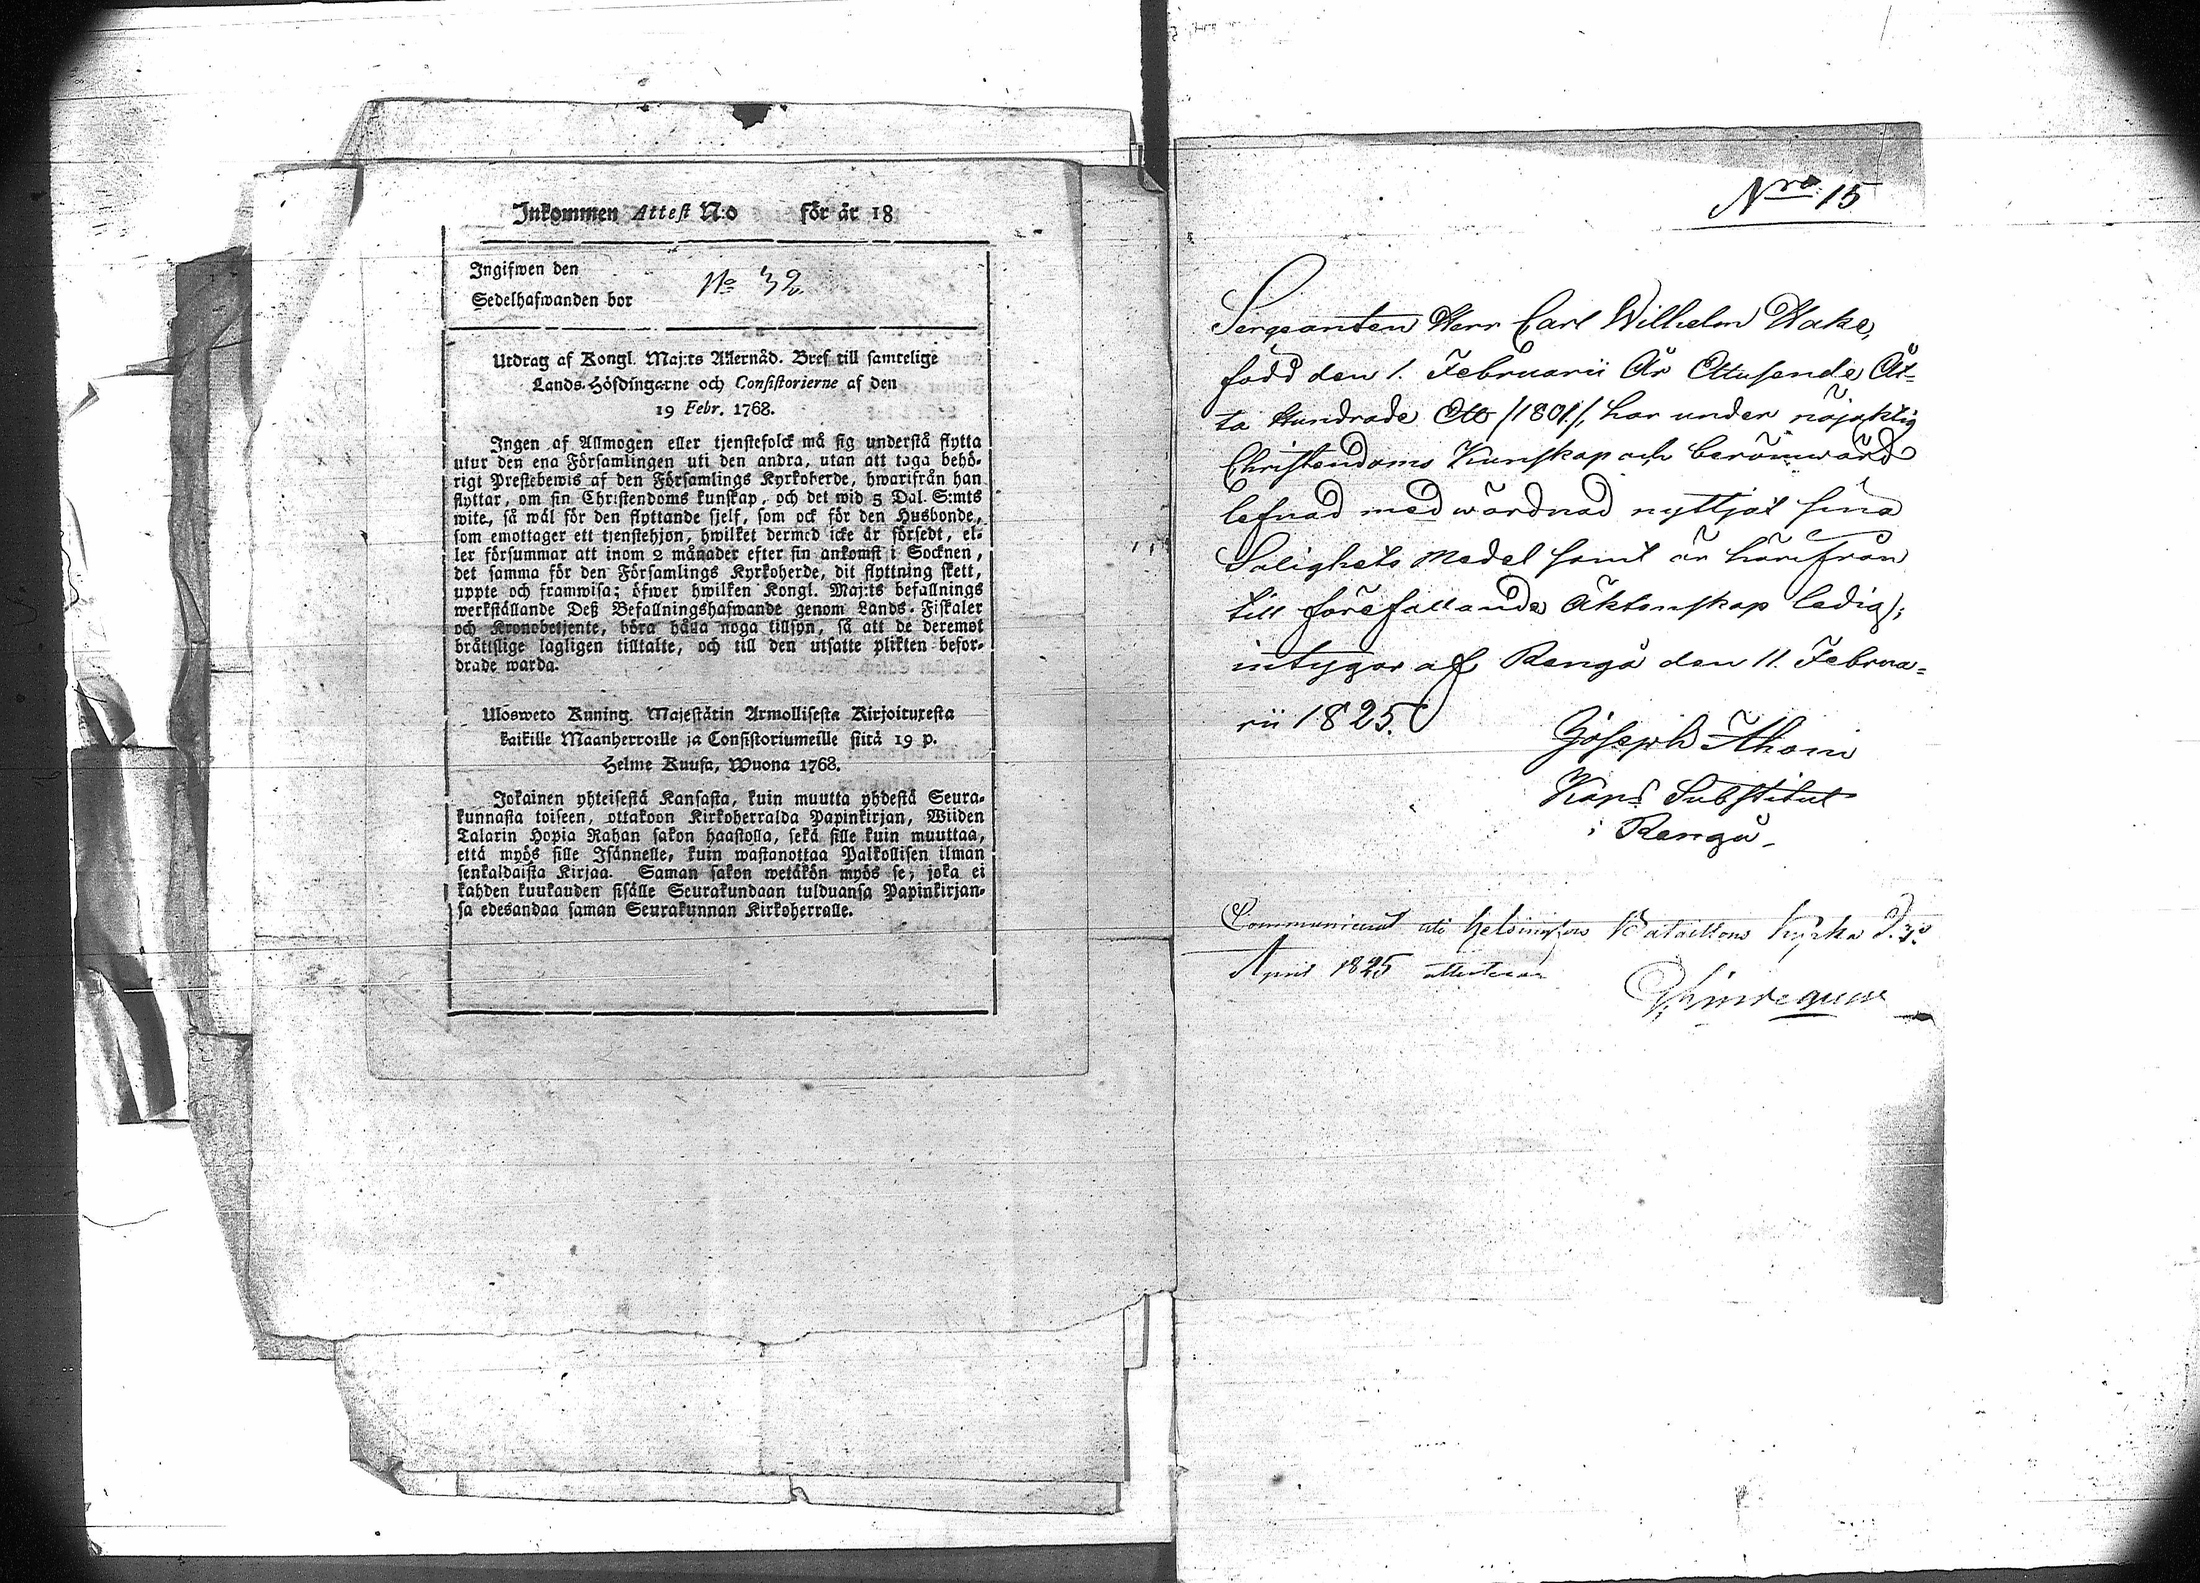 Inkommen Attest N:o för år 18
Ingifwen den
No 32.
Sedelhafwanden bor
Utdrag af Kongl. Maj:ts Allernåd. Bref till samtelige
Lands-Höfdingarne och Consistorierne af den
19 Febr. 1768.
Ingen af Allmogen eller tjenstefolck må sig understå flytta
utur den ena Församlingen uti den andra, utan att taga behö-
rigt Prestebewis af den Församlings Kyrkoherde, hwarifrån han
flyttar, om sin Christendoms kunskap, och det wid 5 Dal. S:mts
wite, så wäl för den flyttande sjelf, som ock för den Husbonde,
som emottager ett tjenstehjon, hwilket dermed icke är försedt, el-
ler försummar att inom 2 månader efter sin ankomst i Socknen,
det samma för den Församlings Kyrkoherde, dit flyttning skett,
uppte och framwisa; öfwer hwilken Kongl. Maj:ts befallnings
werkställande Deß Befallningshafwande genom Lands-Fiskaler
och Kronobetjente, böra hålla noga tillsyn, så att de deremot
bråttslige lagligen tilltalte, och till den utsatte plikten befor-
drade warda.
Ulosweto Kuning. Majestätin Armollisesta Kirjoituxesta
kaikille Maanherroille ja Consistoriumeille siitä 19 p.
Helme Kuusa, Wuona 1768.
Jokainen yhteisestä Kansasta, kuin muutta yhdestä Seura-
kunnasta toiseen, ottakoon Kirkoherralda Papinkirjan, Wiiden
Talarin Hopia Rahan sakon haastolla, sekä sille kuin muuttaa,
että myös sille Isännelle, kuin wastanottaa Palkollisen ilman
senkaldaista Kirjaa. Saman sakon wetäkön myös se, joka ei
kahden kuukauden sisälle Seurakundaan tulduansa Papinkirjan-
sa edesandaa saman Seurakunnan Kirkoherralle.
Nro 15
Sergeanten Herr Carl Wilhelm Wake,
född den 1. Februarii År Ettusende Åt-
ta Hundrade Ett /1801/, har under nöjaktig
Christendoms Kunskap och berömwärd
lefnad med wördnad nyttjat sina
Salighets medel samt är härifrån
till förefallande Äktenskap ledig;
intygar af Rengo den 11. Februa-
rii 1825.
Joseph Ahonius
Kapls Substitut
i Rengo
Communicerat uti Helsingfors Bataillons Kyrka d. 3
April 1825 attesterar